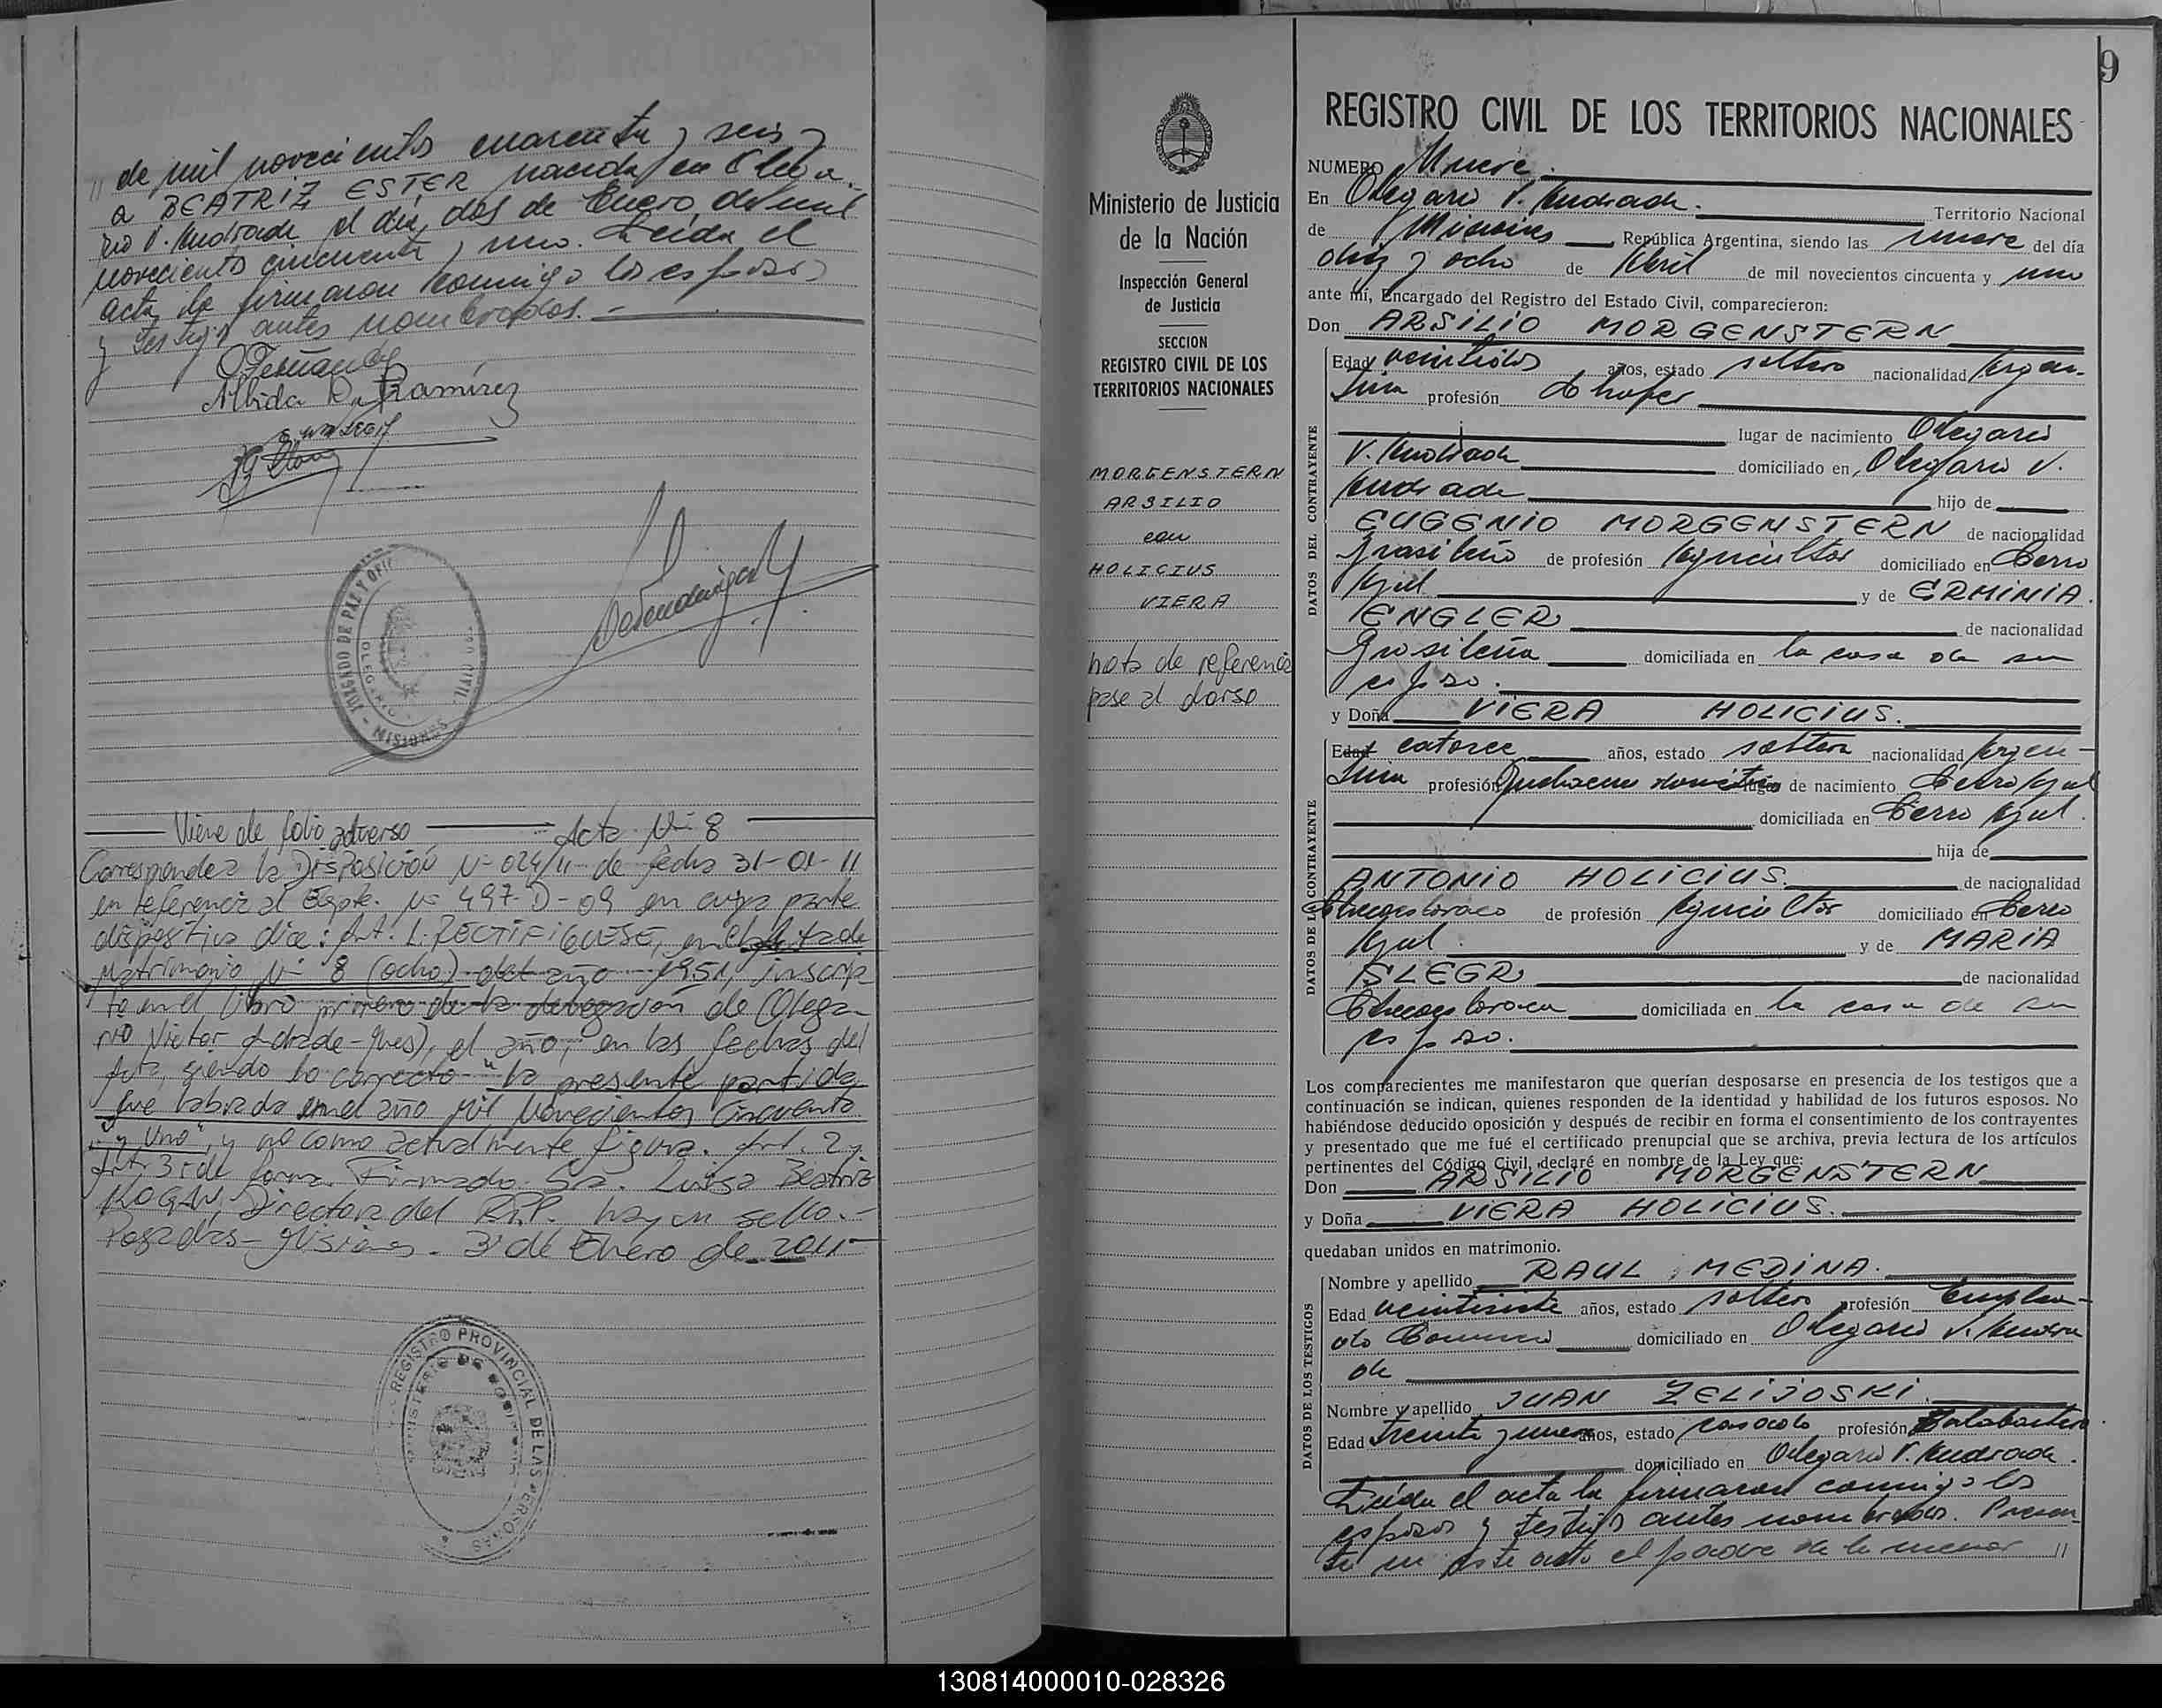 // de mil novecientos cuarenta y seis y
a BEATRIZ ESTER nacida en Olega-
rio V. Andrade el día dos de Enero de mil
novecientos cincuenta y uno. Leida el
acta la firmaron conmigo los esposos
y testigos antes nombrados.-
Albida R. Ramírez
JUZGADO DE PAZ Y OFI
CIVIL
OLEGARIO
MISIONES
Viene de folio adverso Acta Nº 8
Corresponde a la Disposición Nº 024/11 de fecha 31-01-11
en referencia al Expte. Nº 497-D-09 en cuya parte
dispositiva dice: Art. 1. RECTIFIQUESE, en el Acta de
Matrimonio Nº 8 (ocho) del año 1951, inscrip
ta en el libro primero de la delegación de Olega-
rio Victor Andrade-Mnes), el año, en las fechas del
Acta, siendo lo correcto "la presente partida
fue labrada en el año Mil Novecientos Cincuenta
y Uno", y no como actualmente figura. Art. 2 y
Art. 3: de forma. Firmado. Sra. Luisa Beatriz
KOGAN, Directora del R.P.P. hay un sello.-
Posadas-Misiones. 31 de Enero de 2011-
REGISTRO PROVINCIAL DE LAS PERSONAS
MINISTERIO DE GOBIERNO
9
Ministerio de Justicia
de la Nación
Inspección General
de Justicia
SECCION
REGISTRO CIVIL DE LOS
TERRITORIOS NACIONALES
MORGENSTERN
ARSILIO
con
HOLICIUS
VIERA
nota de referencia
pase al dorso
REGISTRO CIVIL DE LOS TERRITORIOS NACIONALES
NUMERO Nueve.
En Olegario V. Andrade. Territorio Nacional
de Misiones República Argentina, siendo las nueve del día
diez y ocho de Abril de mil novecientos cincuenta y uno
ante mí, Encargado del Registro del Estado Civil, comparecieron:
Don ARSILIO MORGENSTERN
DATOS DEL CONTRAYENTE
Edad veintidos años, estado soltero nacionalidad Argen-
tina profesión Chofer
lugar de nacimiento Olegario
V. Andrade domiciliado en Olegario V.
Andrade hijo de
EUGENIO MORGENSTERN de nacionalidad
Brasileño de profesión Agricultor domiciliado en Cerro
Azul y de ERMINIA
ENGLER de nacionalidad
Brasileña domiciliada en la casa de su
esposo.
y Doña VIERA HOLICIUS.
DATOS DE LA CONTRAYENTE
Edad catorce años, estado soltera nacionalidad Argen-
tina profesión Quehacer domésticos lugar de nacimiento Cerro Azul
domiciliada en Cerro Azul.
hija de
ANTONIO HOLICIUS. de nacionalidad
Checoeslovaco de profesión Agricultor domiciliado en Cerro
Azul. y de MARIA
ISLEGR de nacionalidad
Checoeslovaca domiciliada en la casa de su
esposo.
Los comparecientes me manifestaron que querían desposarse en presencia de los testigos que a
continuación se indican, quienes responden de la identidad y habilidad de los futuros esposos. No
habiéndose deducido oposición y después de recibir en forma el consentimiento de los contrayentes
y presentado que me fué el certificado prenupcial que se archiva, previa lectura de los artículos
pertinentes del Código Civil, declaré en nombre de la Ley que:
Don ARSILIO MORGENSTERN
y Doña VIERA HOLICIUS.
quedaban unidos en matrimonio.
DATOS DE LOS TESTIGOS
Nombre y apellido RAUL MEDINA.
Edad veintisiete años, estado soltero profesión Emplea-
do Comercio domiciliado en Olegario V. Andra
de
Nombre y apellido JUAN ZELIJOSKI.
Edad treinta y nueve años, estado casado profesión Talabartero
domiciliado en Olegario V. Andrade.
Leída el acta la firmaron conmigo los
esposos y testigos antes nombrados. Presen-
te en este acto el padre de la menor //
130814000010-028326